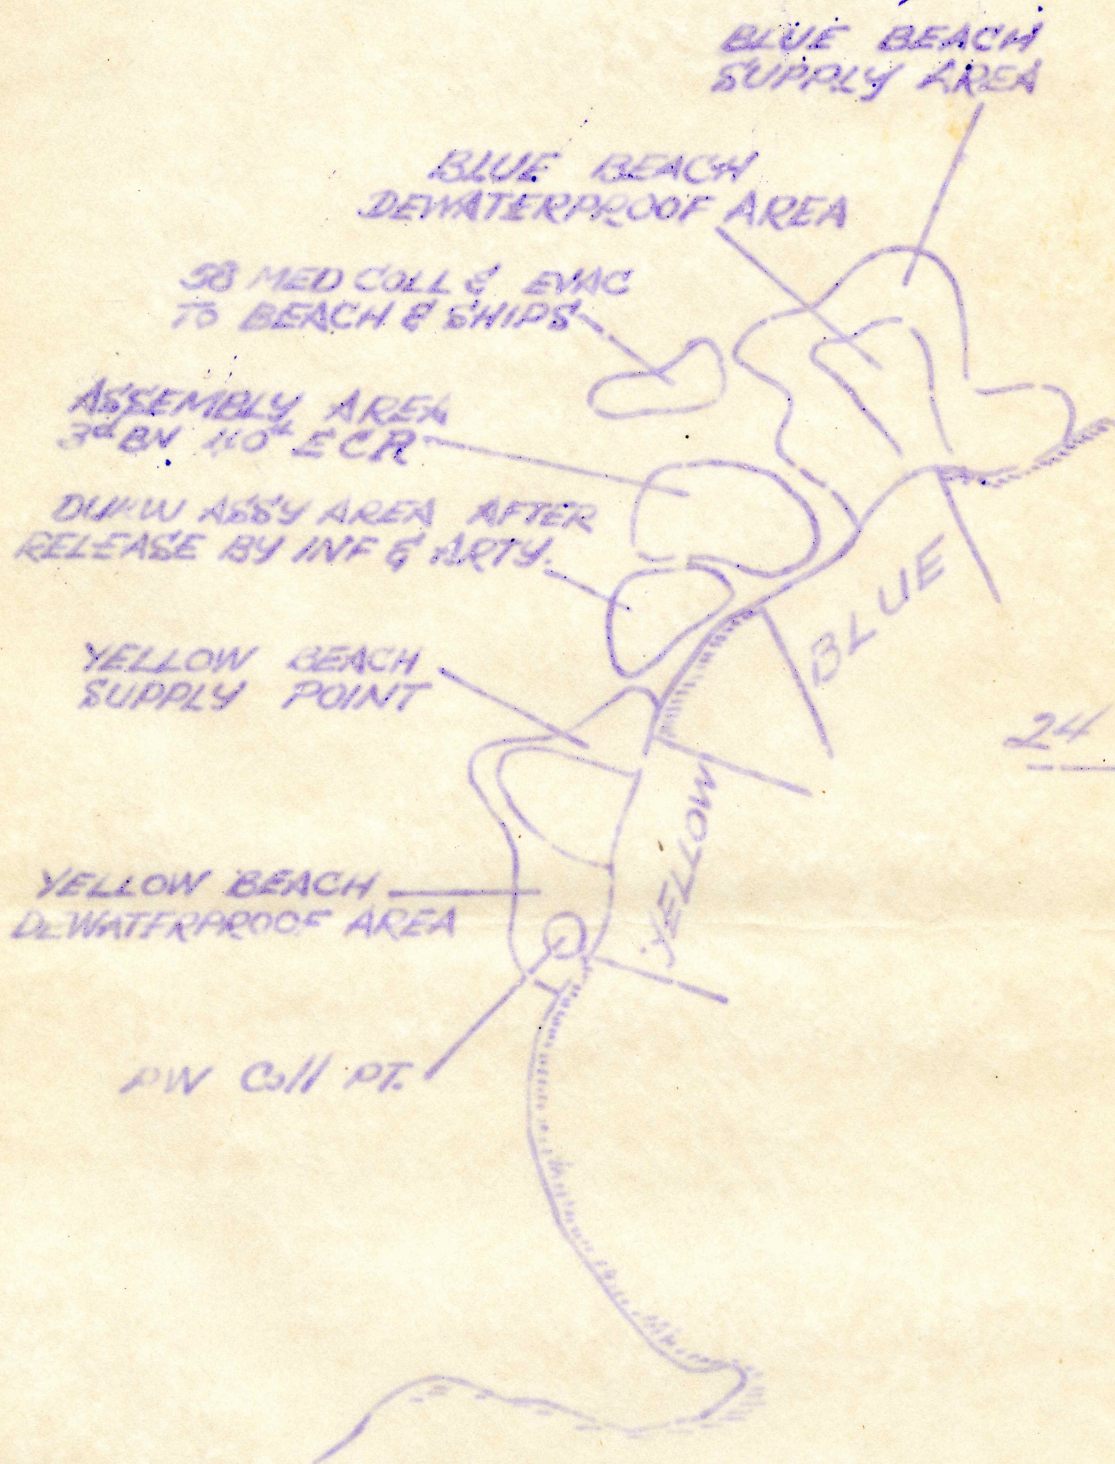 BLUE BEACH
SUPPLY AREA
BLUE BEACH
DEWATERPROOF AREA
58 MED COLL & EVAC
TO BEACH & SHIPS
ASSEMBLY AREA
3d BN 40th ECR
DUKW ASSY AREA AFTER
RELEASE BY INF & ARTY.
BLUE
YELLOW BEACH
SUPPLY POINT
24
YELLOW
YELLOW BEACH
DEWATERPROOF AREA
PW Coll PT.